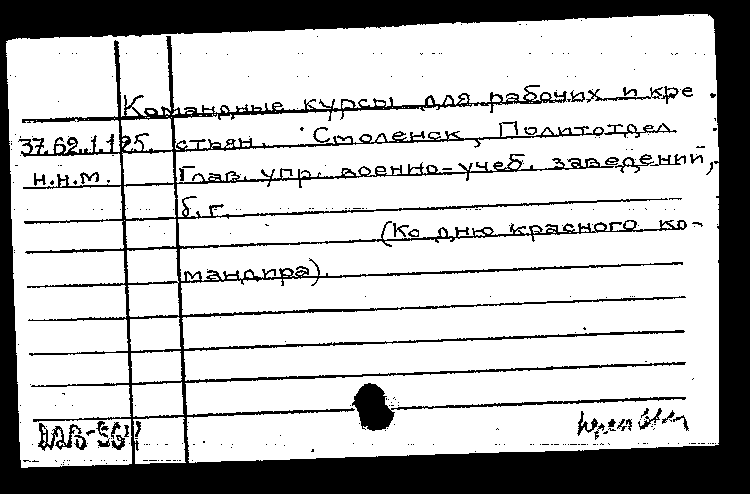 Командные курсы для рабочих и кре
37.62.1.125. стьян. Смоленск, Политотдел
н.н.м. Глав. упр. военно-учеб. заведений,
б.г.
(Ко дню красного ко-
мандира).